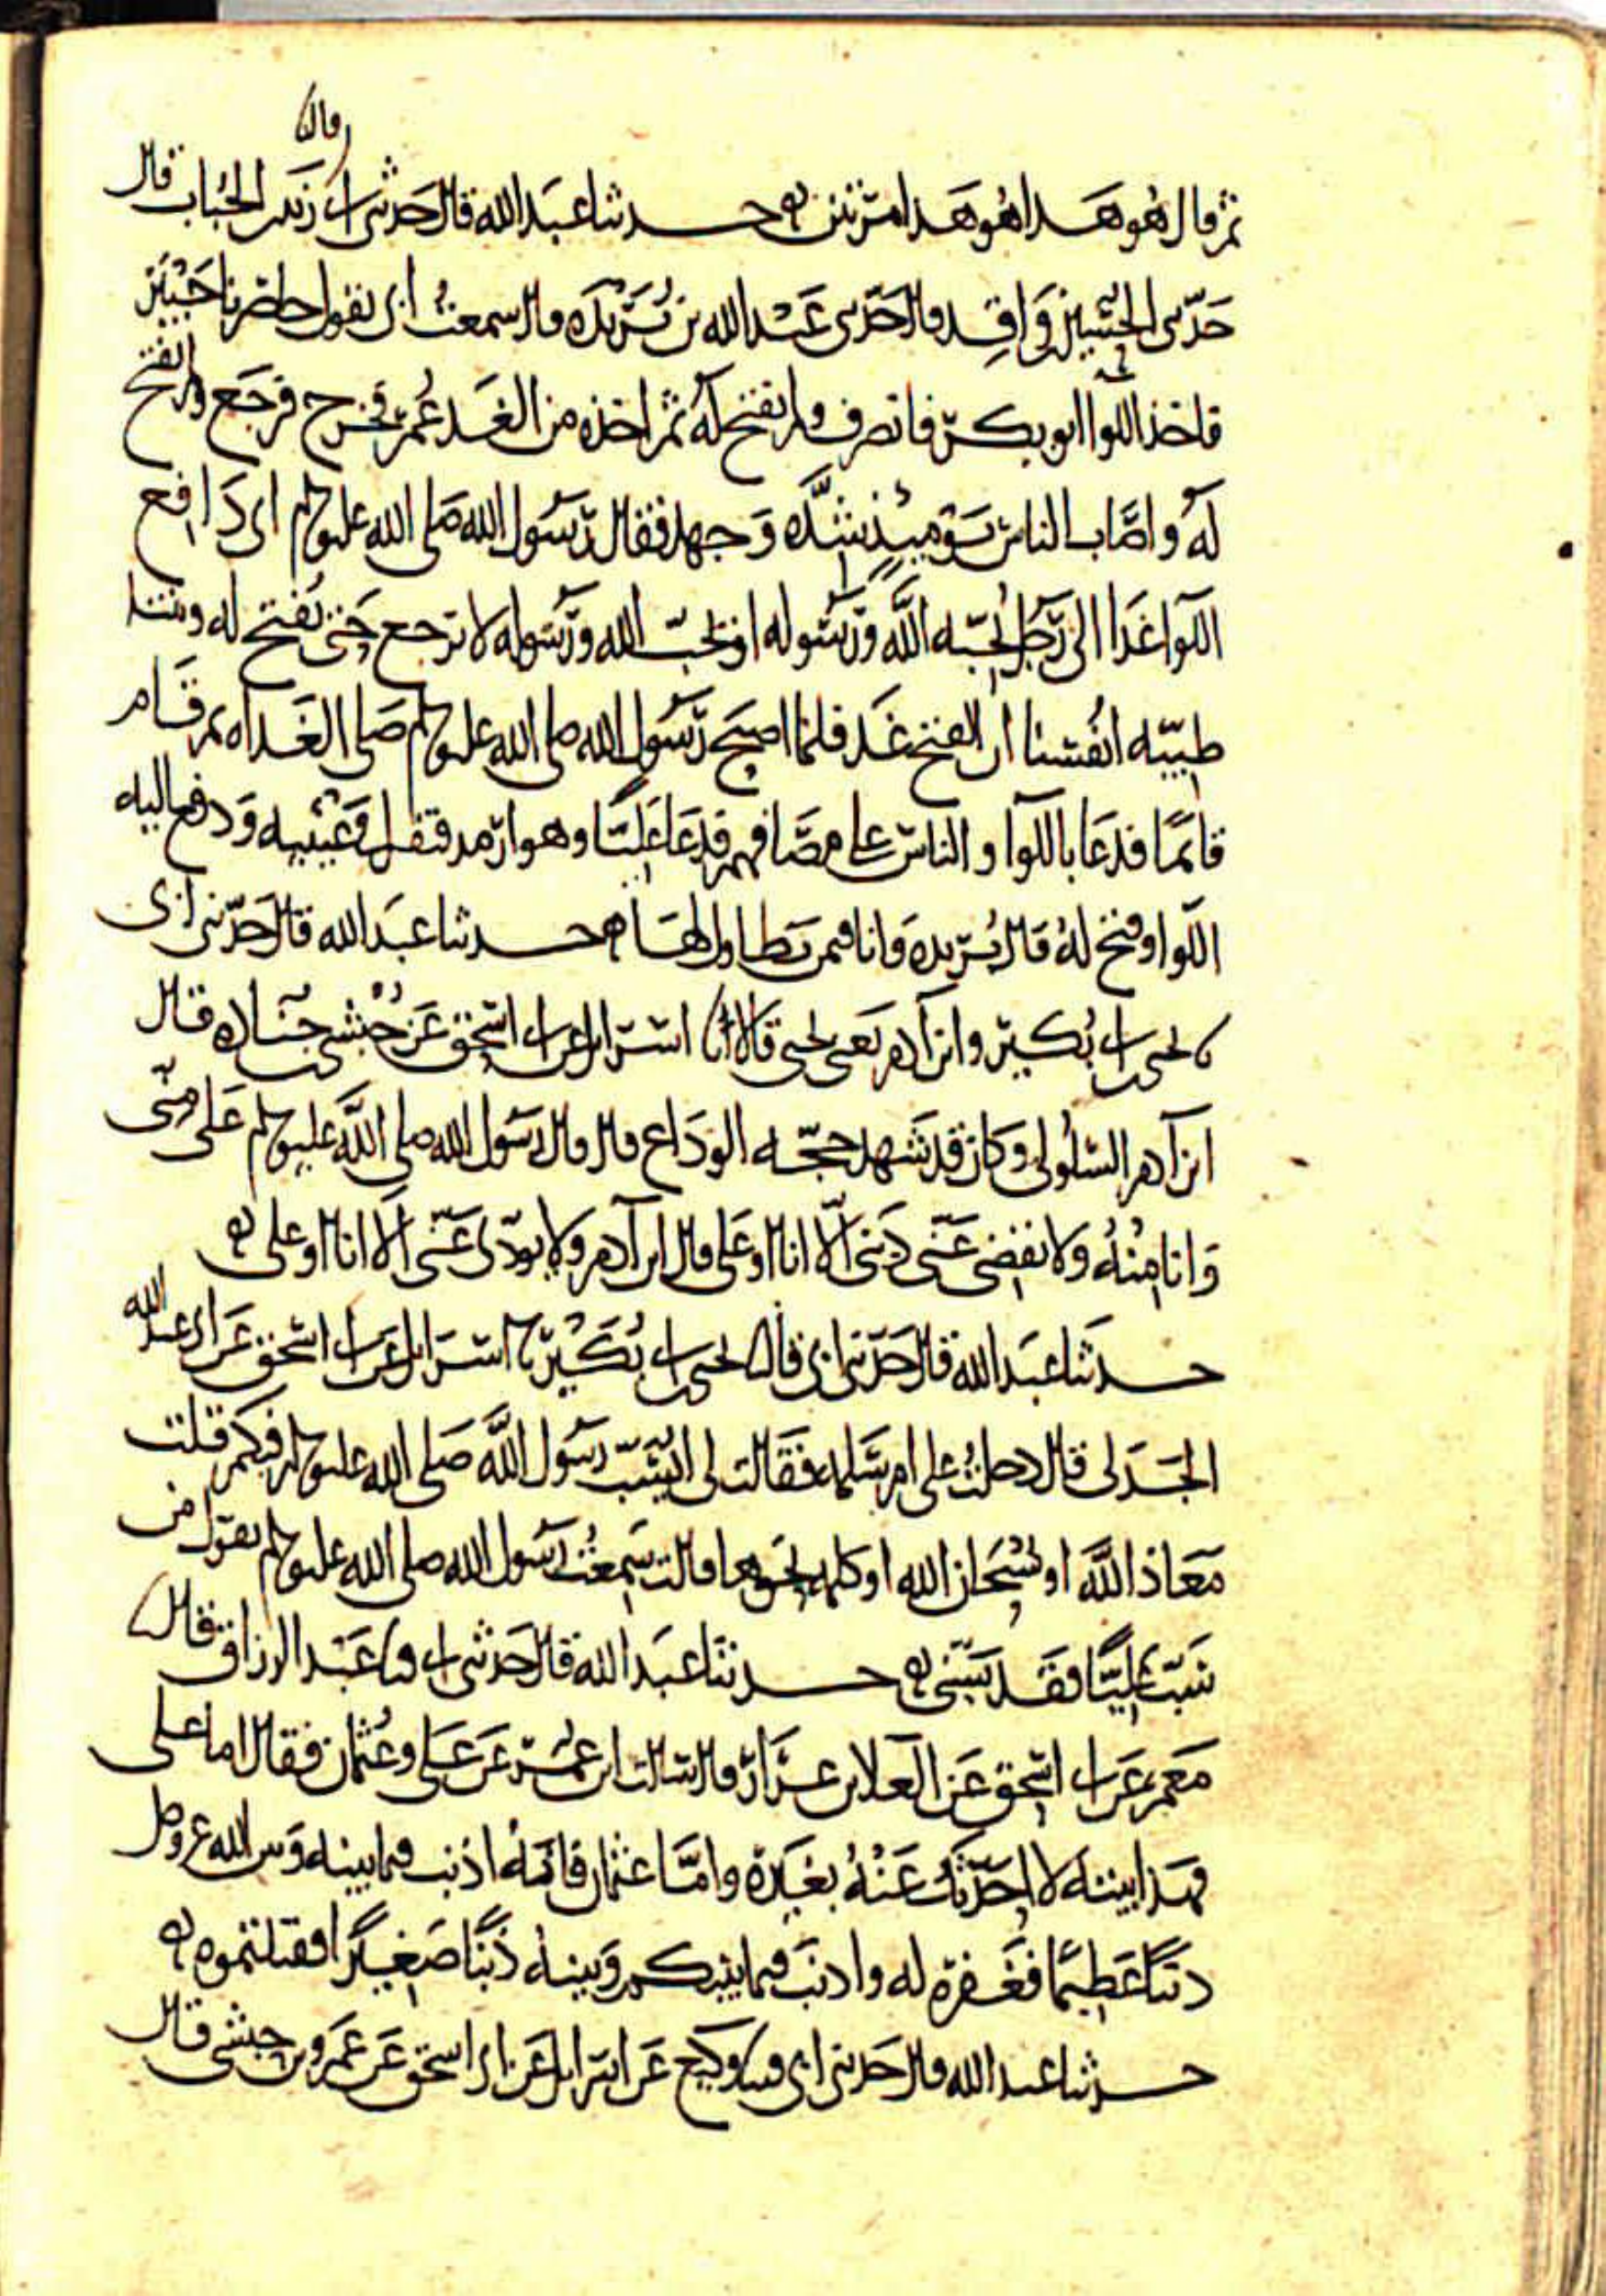 قال
ثم قال هو هذا هو هذا مرتين ه حدثنا عبد الله قال حدثني ابي زيد بن الحباب قال
حدثني الحسين بن واقد قال حدثني عبد الله بن بريدة قال سمعت ابي يقول حاصرنا خيبر
فاخذ اللوا ابو بكر فانصرف ولم يفتح له ثم اخذه من الغد عمر فخرج فرجع ولم يفتح
له واصاب الناس يومئذ شده وجهد فقال رسول الله صلى الله عليه وسلم اني دافع
اللوا غدا الى رجل يحبه الله ورسوله او يحب الله ورسوله لا يرجع حتى يفتح له وبتنا
طيبه انفسنا ان الفتح غد فلما اصبح رسول الله صلى الله عليه وسلم صلى الغداه ثم قام
قائما فدعا باللوا والناس على مصافهم فدعا عليا وهو ارمد فتفل في عينيه ودفع اليه
اللوا وفتح له قال بريده وانا فيمن تطاول لها ه حدثنا عبد الله قال حدثني ابي
نا يحيى بن ابي بكير وابن آدم يعني يحيى قالا نا اسرائيل عن ابي اسحق عن حبشي بن جناده قال
ابن آدم السلولي وكان قد شهد حجه الوداع قال قال رسول الله صلى الله عليه وسلم علي مني
وانا منه ولا يقضي عني ديني الا انا او علي قال ابن آدم ولا يؤدي عني الا انا او علي ه
حدثنا عبد الله قال حدثني ابي قال نا يحيى بن ابي بكير نا اسرائيل عن ابي اسحق عن ابي عبد الله
الجدلي قال دخلت على ام سلمه فقالت لي ايسب رسول الله صلى الله عليه وسلم فيكم قلت
معاذ الله او سبحان الله او كلمه نحوها قالت سمعت رسول الله صلى الله عليه وسلم يقول من
سب عليا فقد سبني ه حدثنا عبد الله قال حدثني ابي قثنا عبد الرزاق قال
معمر عن ابي اسحق عن العلا بن عرار قال سالت ابن عمر عن علي وعثمان فقال اما علي
فهذا بيته لا احدثك عنه بغيره واما عثمان فانه اذنب فيما بينه وبين الله عز وجل
ذنبا عظيما فغفره له واذنب فيما بينكم وبينه ذنبا صغيرا فقتلتموه ه
حدثنا عبد الله قال حدثني ابي قثنا وكيع عن اسرائيل عن ابي اسحق عن عمرو بن حبشي قال